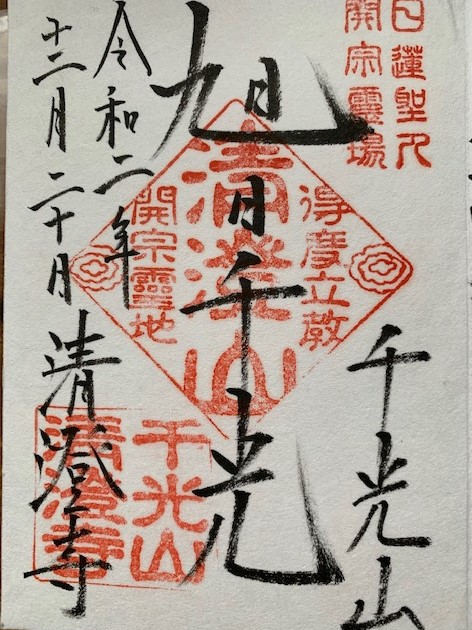 日蓮聖人
開宗靈場
千光山
旭日千光
得度立教
清澄山
開宗靈地
令和二年
十二月二十日 清澄寺
千光山
清澄寺